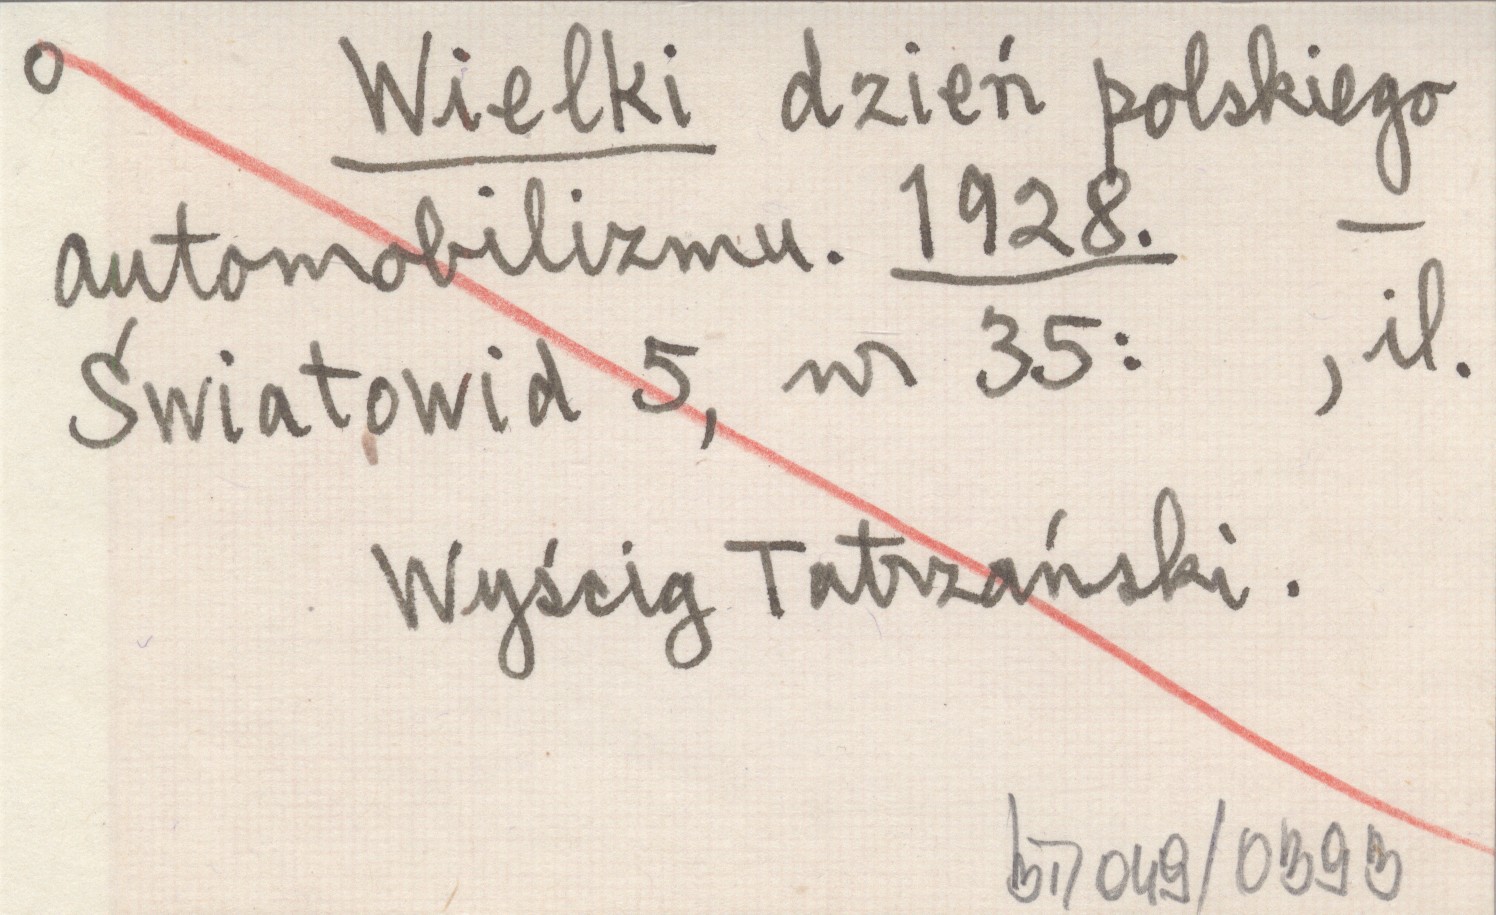 o Wielki dzień polskiego
automobilizmu. 1928. —
Światowid 5, nr 35: , il.
Wyścig Tatrzański.
049/0393